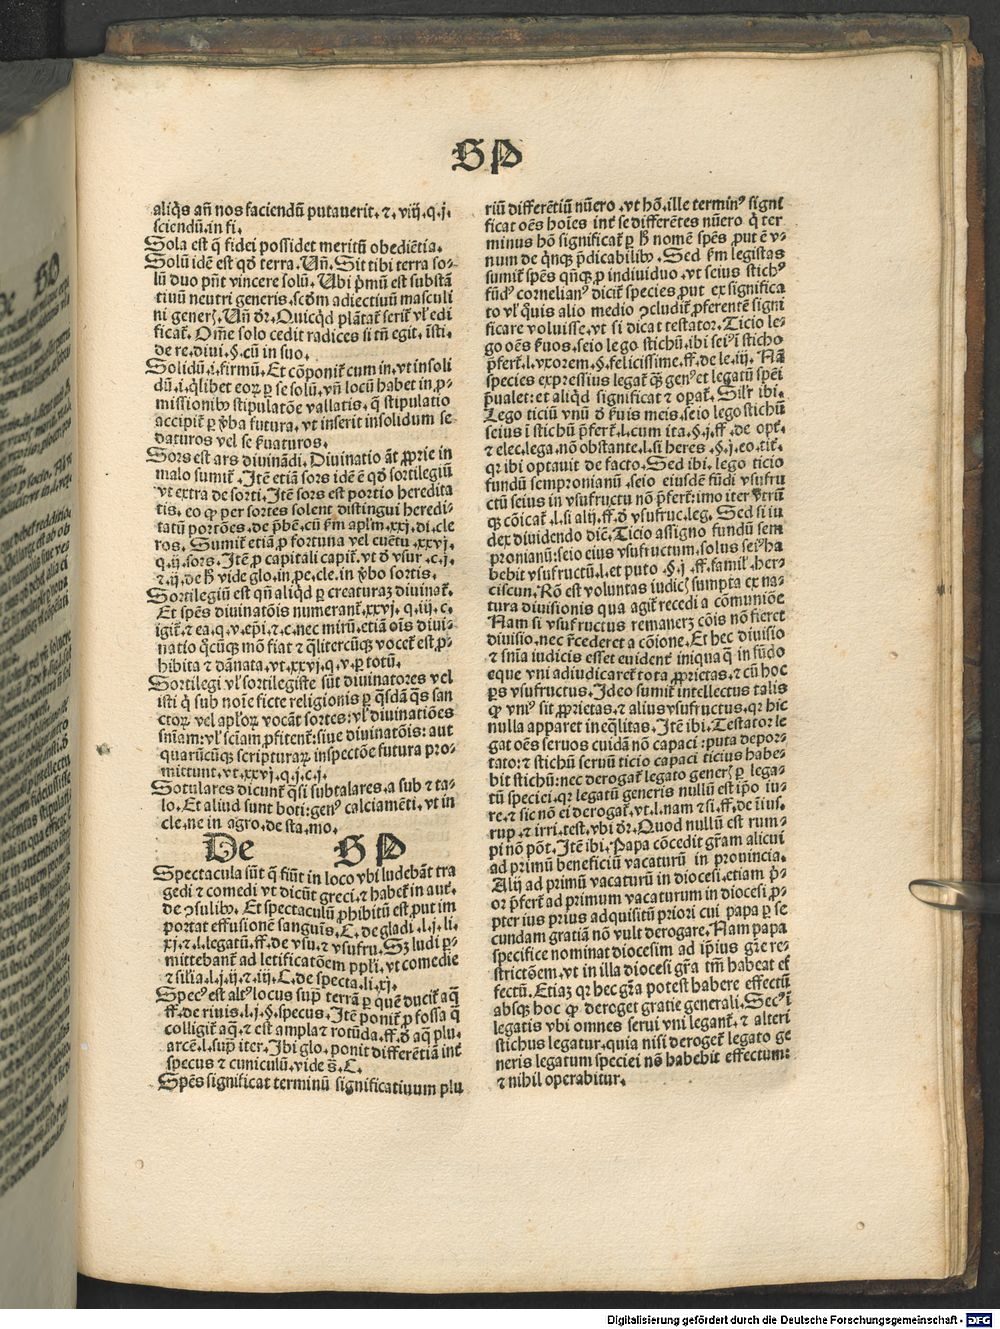 SP
aliq̃s añ nos faciendū putauerit. ⁊. viij. q. j.
sciendū. in fi.
Sola est q̃ fidei possidet meritū obediētia.
Solū idē est qđ terra. Uñ. Sit tibi terra so-
lū duo pñt vincere solū. Ubi p̃mū est substā
tiuū neutri generis. scđm adiectiuū masculi
ni generꝭ. Uñ đr. Quicq̃d plātat̃ serit̃ vl̃ edi
ficat̃. Om̃e solo cedit radices si tñ egit. īsti.
de re. diui. §. cū in suo.
Solidū. i. firmū. Et cōponit̃ cum in. vt insoli
dū. i. q̃libet eoꝝ ꝑ se solū. vñ locū habet in ꝓ-
missionibꝰ stipulatōe vallatis. q̃ stipulatio
accipit̃ ꝑ ṽba futura. vt inserit insolidum se
daturos vel se f̃uaturos.
Sors est ars diuināđi. Diuinatio āt ꝓprie in
malo sumit̃. Itē etiā sors idē ē qđ sortilegiū
vt extra de sorti. Itē sors est portio heredita
tis. eo ꝙ per sortes solent distingui heredi-
tatū portōes. de p̃bē. cū f̃m apl̃m. xxj. di. cle
ros. Sumit̃ etiā ꝓ fortuna vel euētu. xxvj.
q. ij. sors. Itē ꝓ capitali capit̃. vt đ vsur. c. j.
⁊. ij. de h̃ vide glo. in pe. cle. in ṽbo sortis.
Sortilegiū est qñ aliq̃d ꝑ creaturaꝫ diuinat̃.
Et spēs diuinatōis numerant̃. xxvj. q. iij. c.
igit̃. ⁊ ea. q. v. ep̃i. ⁊. c. nec mirū. etiā oīs diui-
natio q̃cūqꝫ mō fiat ⁊ q̃litercūqꝫ vocet̃ est ꝓ-
hibita ⁊ dānata. vt. xxvj. q. v. ꝑ totū.
Sortilegi vl̃ sortilegiste sūt diuinatores vel
isti q̃ sub noīe ficte religionis ꝑ q̃sdā q̃s san
ctoꝝ vel apl̃oꝝ vocāt sortes: vl̃ diuinatiōes
snīam: vl̃ sciam ꝓfitent̃: siue diuinatōis: aut
quarūcūqꝫ scripturaꝝ inspectōe futura pro-
mittunt. vt. xxvj. q. j. c. j.
Sotulares dicunt̃ q̃si subtalares. a sub ⁊ ta-
lo. Et aliud sunt boti: genꝰ calciamēti. vt in
cle. ne in agro. de sta. mo.
De SP
Spectacula sūt q̃ fiūt in loco vbi ludebāt tra
gedi ⁊ comedi vt dicūt greci. ⁊ habet̃ in aut̃.
de ꝯsulibꝰ. Et spectaculū ꝓhibitū est. put im
portat effusionē sanguis. C. de gladi. l. j. li.
xj. ⁊. l. legatū. ff. de vsu. ⁊ vsufru. Sꝫ ludi ꝑ-
mittebant̃ ad letificatōem ppl̃i. vt comedie
⁊ sil̃ia. l. j. ij. ⁊ iij. C. de specta. li. xj.
Specꝰ est altꝰ locus sup̃ terrā ꝑ quē ducit̃ aq̃
ff. de riuis. l. j. §. specus. Itē ponit̃ ꝓ fossa q̃
colligit̃ aq̃. ⁊ est ampla ⁊ rotūda. ff. đ aq̃ plu.
arcē. l. sup̃ iter. Ibi glo. ponit differētiā int̃
specus ⁊ cuniculū. vide s̃. C.
Spēs significat terminū significatiuum plu
riū differētiū nūero. vt hō. ille terminꝰ signi
ficat oēs hoīes int̃ se differētes nūero q̃ ter
minus hō significat̃ ꝑ h̃ nomē spēs. ꝓut ē v-
num de q̃nqꝫ p̃dicabilibꝰ. Sed f̃m legistas
sumit̃ spēs qñqꝫ ꝓ indiuiduo. vt seius stichꝰ
fūdꝰ cornelianꝰ dicit̃ species. ꝓut ex significa
to vl̃ q̃uis alio medio ꝯcludit̃ ꝓferentē signi
ficare voluisse. vt si dicat testator. Ticio le-
go oēs f̃uos. seio lego stichū. ibi seiꝰ ī sticho
p̃fert̃. l. vxorem. §. felicissime. ff. de le. iij. Nā
species expressius legat̃ q̃ꝫ genꝰ et legatū spēi
p̃ualet: et aliq̃d significat ⁊ oꝑat̃. Sil̃r ibi.
Lego ticiū vnū đ f̃uis meis. seio lego stichū
seius ī stichū p̃fert̃. l. cum ita. §. j. ff. de opt̃.
⁊ elec. lega. nō obstante. l. si heres. §. j. eo. tit̃.
qꝛ ibi optauit de facto. Sed ibi. lego ticio
fundū sempronianū. seio eiusdē fūdi vsufru
ctū seius in vsufructu nō p̃fert̃: imo iter vtrū
qꝫ cōicat̃. l. si alij. ff. đ vsufruc. leg. Sed si iu
dex diuidendo diē. Ticio assigno fundū sem
pronianū: seio eius vsufructum. solus seiꝰ ha
bebit vsufructū. l. et puto. §. j. ff. famil̃. her-
ciscun. Rō est voluntas iudicꝭ sumpta ex na-
tura diuisionis qua agit̃ recedi a cōmuniōe
Nam si vsufructus remanerꝫ cōis nō fieret
diuisio. nec r̃cederet a cōione. Et hec diuisio
⁊ snīa iudicis esset euident̃ iniqua q̃ in fūdo
eque vni adiudicaret̃ tota ꝓprietas. ⁊ cū hoc
ꝑs vsufructus. Ideo sumit̃ intellectus talis
ꝙ vniꝰ sit ꝓprietas. ⁊ alius vsufructus. qꝛ hic
nulla apparet ineq̃litas. Itē ibi. Testator le
gat oēs seruos cuidā nō capaci: puta depor-
tato: ⁊ stichū seruū ticio capaci ticius habe-
bit stichū: nec derogat̃ legato generꝭ ꝑ lega-
tū speciei. qꝛ legatū generis nullū est ip̃o iu-
re. ⁊ sic nō ei derogat̃. vt. l. nam ⁊ si. ff. de iius.
rup. ⁊ irri. test. vbi đr. Quod nullū est rum-
pi nō pōt. Itē ibi. Papa cōcedit gr̃am alicui
ad primū beneficiū vacaturū in prouincia.
Alij ad primū vacaturū in diocesi. etiam p̃-
or p̃fert̃ ad primum vacaturum in diocesi ꝓ-
pter ius prius adquisitū priori cui papa ꝑ se
cundam gratiā nō vult derogare. Nam papa
specifice nominat diocesim ad ip̃ius gr̃e re-
strictōem. vt in illa diocesi gr̃a tm̄ habeat ef
fectū. Etiaꝫ qꝛ hec gr̃a potest habere effectū
absqꝫ hoc ꝙ deroget gratie generali. Secꝰ ī
legatis vbi omnes serui vni legant̃. ⁊ alteri
stichus legatur. quia nisi deroget̃ legato ge
neris legatum speciei non habebit effectum:
⁊ nihil operabitur.
Digitalisierung gefördert durch die Deutsche Forschungsgemeinschaft - DFG